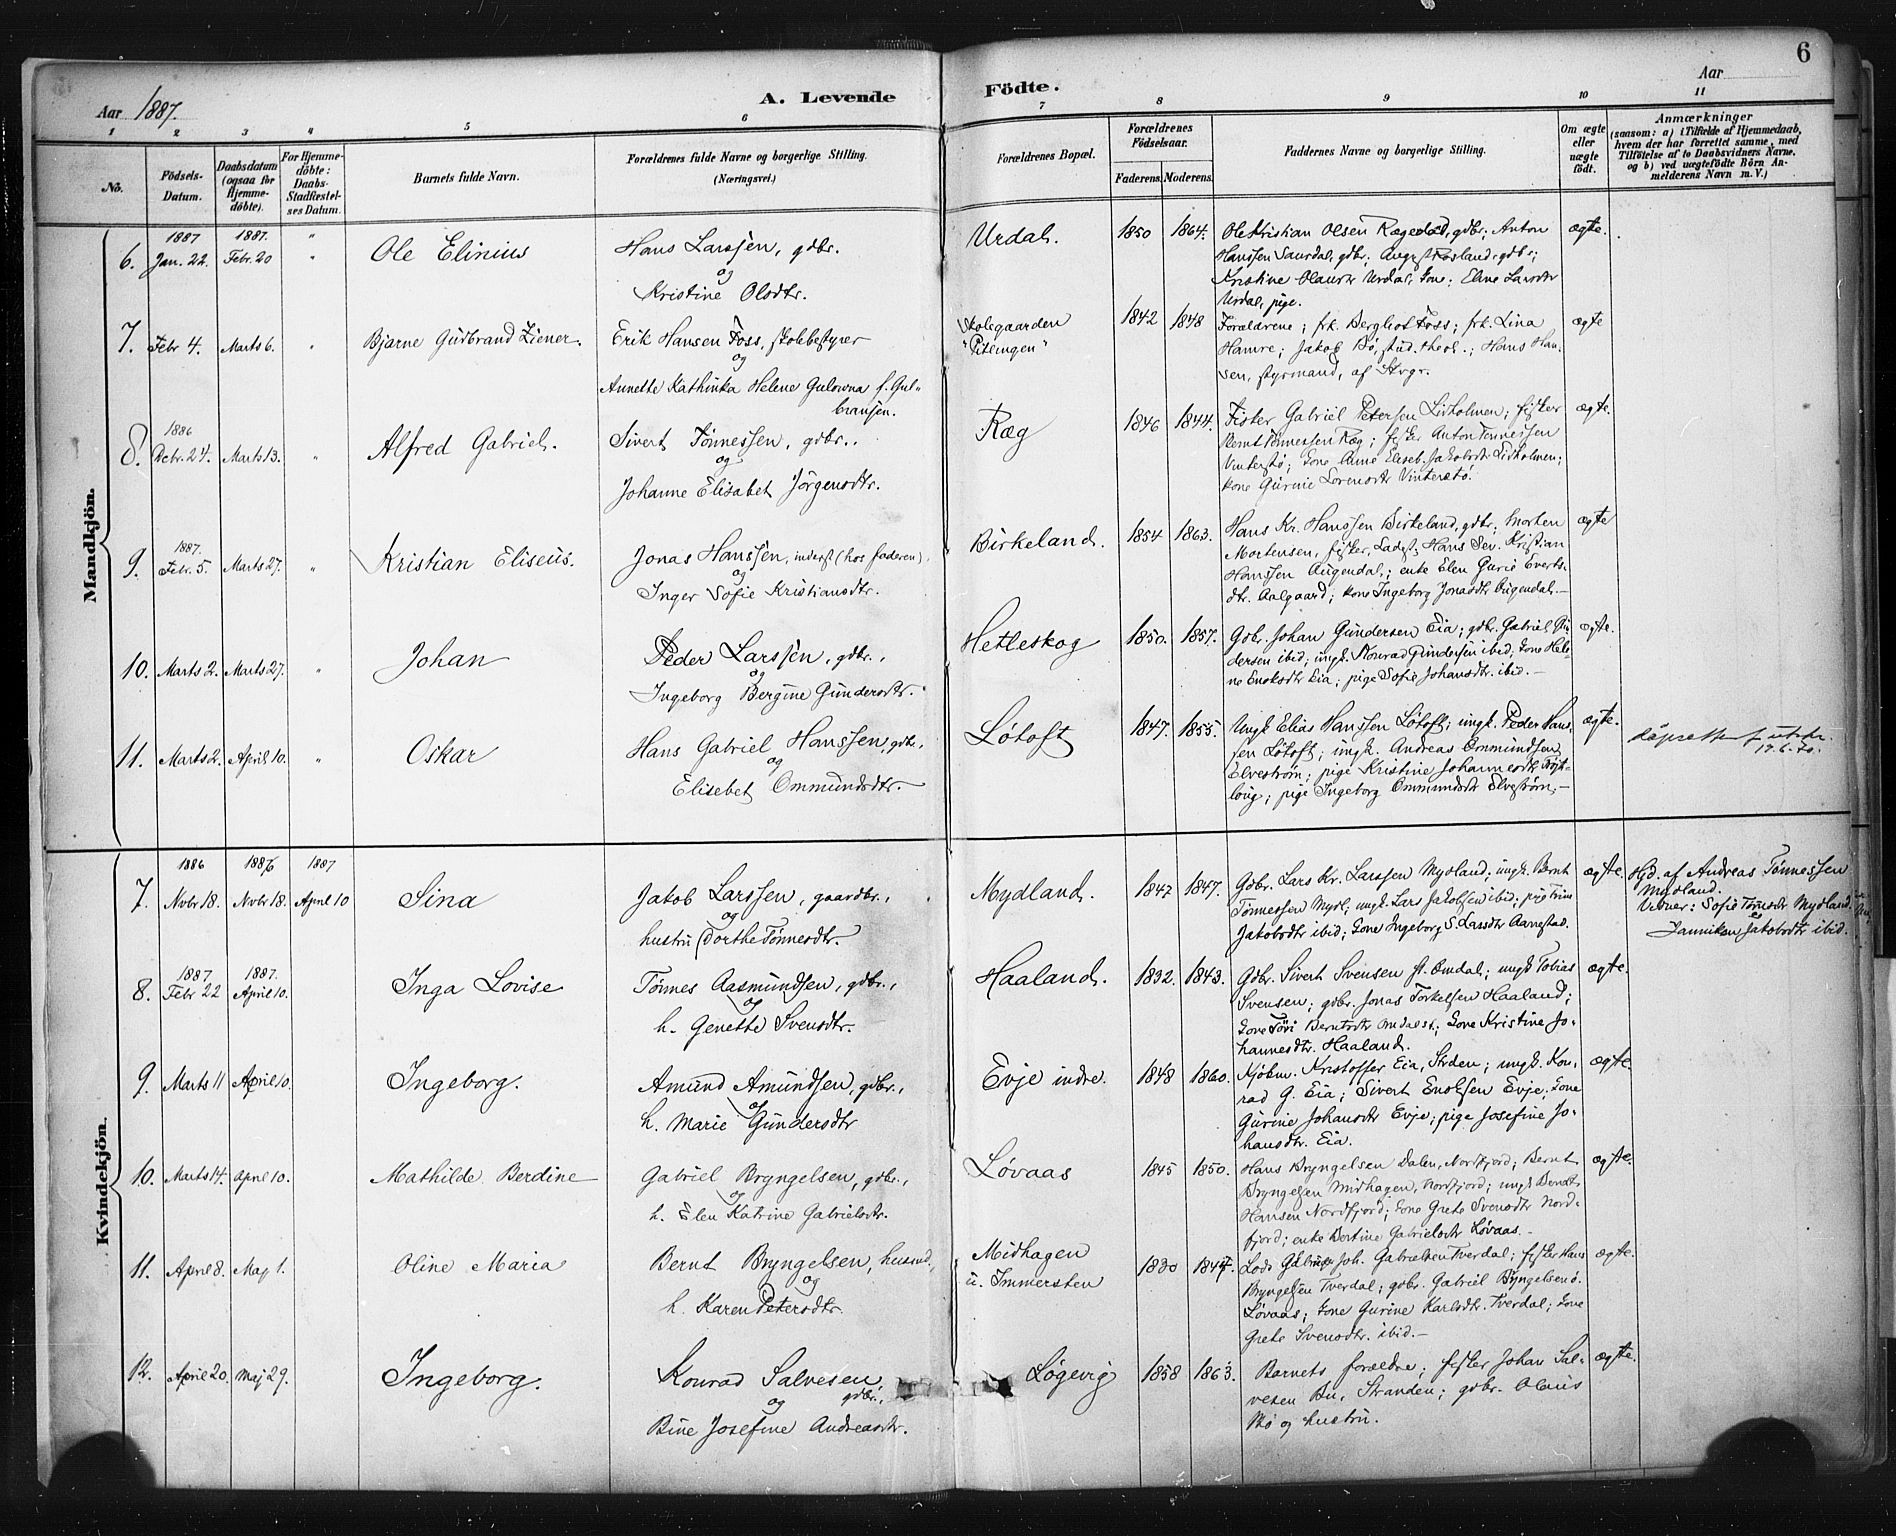 6
Aar 1887.
A. Levende Födte.
Aar
1 2 3 4 5 6 7 8 9 10 11
No.
Födsels-Datum.
Daabsdatum (ogsaa for Hjemme-döbte).
For Hjemme-döbte: Daabs-Stadfæstel-ses Datum.
Barnets fulde Navn.
Forældrenes fulde Navne og borgerlige Stilling. (Næringsvei.)
Forældrenes Bopæl.
Forældrenes Födselsaar.
Faderens. Moderens.
Faddernes Navne og borgerlige Stilling.
Om ægte eller uægte födt.
Anmærkninger
(saasom: a) i Tilfælde af Hjemmedaab,
hvem der har forrettet samme, med
Tilföielse af to Daabsvidners Navne,
og b) ved uægtefödte Börn An-
melderens Navn m. V.)
Mandkjön.
6. 1887 Jan. 22. 1887. Febr. 20 " Ole Elinius
Hans Larssen, gdbr.
og
Kristine Olsdtr.
Urdal. 1850 1864.
Ole Kristian Olsen Rægedal, gdbr.; Anton
Hanssen Saurdal, gdbr.; August Røsland, gdbr.;
Kristine Olausdtr Urdal, kone; Eline Larsdtr
Urdal, pige.
ægte.
7. Febr 4. Marts 6. " Bjarne Gudbrand Ziener.
Erik Hansen Foss, skolebestyrer
og
Annette Kathinka Helene Gulowna f. Gul-
bransen.
Skolegaarden
1842 1848
Forældrene; frk. Bergliot Foss; frk. Lina
Hamre; Jakob Bø, stud. theol.; Hans Han-
sen, styrmand, af Stvgr.
ægte
8. 1886 Dcbr. 24. Marts 13. " Alfred Gabriel.
Sivert Tönnessen, gdbr.
og
Johanne Elisabet Jörgensdtr.
Ræg 1846 1844.
Fisker Gabriel Petersen Lidholmen; fisker
Bernt Tönnessen Ræg; fisker Anton Tönnessen
Vinterstø; kone Anne Eliseb. Jakobsdtr Lidholmen;
kone Gurine Lorensdtr Vinterstø.
ægte.
9. 1887. Febr. 5. Marts 27. " Kristian Eliseus.
Jonas Hanssen, inderst (hos faderen).
og
Inger Sofie Kristiansdtr.
Birkeland. 1854 1863.
Hans Kr. Hanssen Birkeland, gdbr.; Morten
Mortensen, fisker, Hans Sev. Kristian
Hanssen Augendal; enke Elen Gurie Everts-
dtr. Aalgaard; kone Ingeborg Jonasdtr Augendal.
ægte
10. Marts 2. Marts 27. " Johan
Peder Larssen, gdbr.,
og
Ingeborg Bergine Gundersdtr.
Hetleskog 1850. 1857.
Gdb. Johan Gundersen Eia; gdbr. Gabriel Gun-
dersen ibid; ungk. Konrad Gundersen ibid, kone Hele-
ne Enoksdtr Eia; pige Sofie Johansdtr. ibid.
ægte.
11. Marts 2. April 10. " Oskar
Hans Gabriel Hanssen, gdbr.,
og
Elisebet Ommundsdtr.
Lötoft 1847. 1855.
Ungk Elias Hanssen Lötoft; ungk. Peder Hans-
sen Lötoft; ungk. Andreas Ommundsen
Elvestrøm; pige Kristine Johannesdtr
pige Ingeborg Ommundsdtr Elvestrøm.
ægte.
Kvindekjön.
7. 1886 Novbr 18. 1886 Novbr 18. 1887 April 10 Sina
Jakob Larssen, gaardbr.,
og
hustru Dorthe Tönnesdtr.
Mydland. 1847 1847.
Gdbr. Lars Kr. Larssen Mydland; ungk. Bernt
Tönnessen Mydl; ungk. Lars Jakobsen ibid; pige Trine
Jakobsdtr ibid; kone Ingeborg S. Larsdtr Aarrestad.
ægte.
Hjd. af Andreas Tönnessen
Mydland.
Vidner: Sofie Tönesdtr Mydland.
og
Janniken Jakobsdtr ibid.
8. 1887 Febr 22 1887. April 10. Inga Lovise
Tönnes Aasmundsen, gdbr.,
og
h. Genette Svensdtr.
Haaland. 1832. 1843.
Gdbr. Sivert Svensen st. Omdal; ungk Tobias
Svensen; gdbr. Jonas Torkelsen Haaland;
kone Töri Berntsdtr Omdal st.; kone Kristine Jo-
hannesdtr. Haaland.
ægte.
9. Marts 11 April 10. Ingeborg.
Amund Amundsen, gdbr.,
og
h. Marie Gundersdtr
Evje indre. 1848 1860.
Kjöbm. Kristoffer Eia, Strden; ungk. Kon-
rad G. Eia; Sivert Enoksen Evje; kone
Gurine Johansdtr Evje; pige Josefine Jo-
hansdtr. Eia.
ægte.
10. Marts 14. April 10. Mathilde Berdine
Gabriel Bryngelsen, gdbr.,
og
h. Elen Katrine Gabrielsdtr.
Lövaas 1845 1850.
Hans Bryngelsen Dalen, Nordfjord; Bernt
Bryngelsen Midhagen, Nordfjord; ungk Berndt
Hansen Nordfjord; kone Grete Svensdtr Nord-
fjord; enke Bertine Gabrielsdtr Lövaas.
ægte.
11. April 8. Maj 1. Oline Maria
Bernt Bryngelsen, husmd.,
og
h. Karen Petersdtr.
Midhagen
u. Immersten
1830 1847.
Lods Gabriel Joh. Gabrielsen Tverdal; fisker Hans
Bryngelsen Tverdal; gdbr. Gabriel Bryngelsen ö.
Lövaas; kone Gurine Karlsdtr. Tverdal; kone
Grete Svensdtr. ibid.
ægte.
12. April 20. Maj 29. Ingeborg.
Konrad Salvesen,
gdbr.,
og
Bine Josefine Andreasdtr.
Lögevig 1858 1863.
Barnets forældre; fisker Johan Sal-
vesen Bu, Stranden; gdbr. Olaus
Bö og hustru.
ægte.